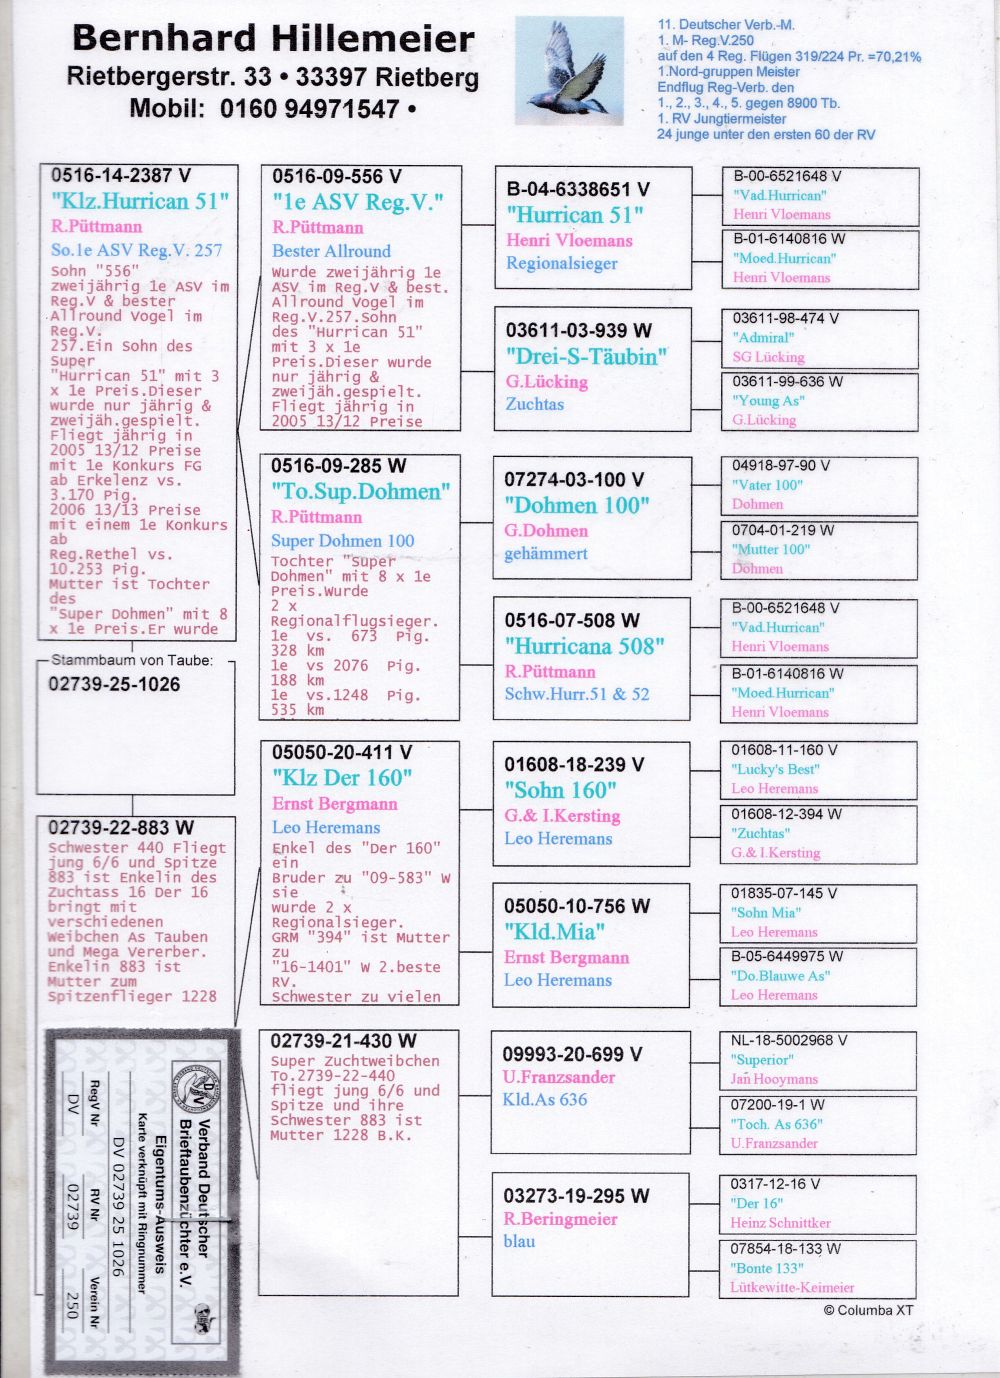 Bernhard Hillemeier
Rietbergerstr. 33 • 33397 Rietberg
Mobil: 0160 94971547 •
11. Deutscher Verb.-M.
1. M- Reg.V.250
auf den 4 Reg. Flügen 319/224 Pr. =70,21%
1.Nord-gruppen Meister
Endflug Reg-Verb. den
1., 2., 3., 4., 5. gegen 8900 Tb.
1. RV Jungtiermeister
24 junge unter den ersten 60 der RV
0516-14-2387 V
"Klz.Hurrican 51"
R.Püttmann
So.1e ASV Reg.V. 257
Sohn "556"
zweijährig 1e ASV im
Reg.V & bester
Allround Vogel im
Reg.V.
257.Ein Sohn des
Super
"Hurrican 51" mit 3
x 1e Preis.Dieser
wurde nur jährig &
zweijäh.gespielt.
Fliegt jährig in
2005 13/12 Preise
mit 1e Konkurs FG
ab Erkelenz vs.
3.170 Pig.
2006 13/13 Preise
mit einem 1e Konkurs
ab
Reg.Rethel vs.
10.253 Pig.
Mutter ist Tochter
des
"Super Dohmen" mit 8
x 1e Preis.Er wurde
Stammbaum von Taube:
02739-25-1026
02739-22-883 W
Schwester 440 Fliegt
jung 6/6 und Spitze
883 ist Enkelin des
Zuchtass 16 Der 16
bringt mit
verschiedenen
Weibchen As Tauben
und Mega Vererber.
Enkelin 883 ist
Mutter zum
Spitzenflieger 1228
0516-09-556 V
"1e ASV Reg.V."
R.Püttmann
Bester Allround
Wurde zweijährig 1e
ASV im Reg.V & best.
Allround Vogel im
Reg.V.257.Sohn
des "Hurrican 51"
mit 3 x 1e
Preis.Dieser wurde
nur jährig &
zweijäh.gespielt.
Fliegt jährig in
2005 13/12 Preise
0516-09-285 W
"To.Sup.Dohmen"
R.Püttmann
Super Dohmen 100
Tochter "Super
Dohmen" mit 8 x 1e
Preis.Wurde
2 x
Regionalflugsieger.
1e vs. 673 Pig.
328 km
1e vs 2076 Pig.
188 km
1e vs.1248 Pig.
535 km
05050-20-411 V
"Klz Der 160"
Ernst Bergmann
Leo Heremans
Enkel des "Der 160"
ein
Bruder zu "09-583" W
sie
wurde 2 x
Regionalsieger.
GRM "394" ist Mutter
zu
"16-1401" W 2.beste
RV.
Schwester zu vielen
02739-21-430 W
Super Zuchtweibchen
To.2739-22-440
fliegt jung 6/6 und
Spitze und ihre
Schwester 883 ist
Mutter 1228 B.K.
B-04-6338651 V
"Hurrican 51"
Henri Vloemans
Regionalsieger
03611-03-939 W
"Drei-S-Täubin"
G.Lücking
Zuchtas
07274-03-100 V
"Dohmen 100"
G.Dohmen
gehämmert
0516-07-508 W
"Hurricana 508"
R.Püttmann
Schw.Hurr.51 & 52
01608-18-239 V
"Sohn 160"
G.& I.Kersting
Leo Heremans
05050-10-756 W
"Kld.Mia"
Ernst Bergmann
Leo Heremans
09993-20-699 V
U.Franzsander
Kld.As 636
03273-19-295 W
R.Beringmeier
blau
B-00-6521648 V
"Vad.Hurrican"
Henri Vloemans
B-01-6140816 W
"Moed.Hurrican"
Henri Vloemans
03611-98-474 V
"Admiral"
SG Lücking
03611-99-636 W
"Young As"
G.Lücking
04918-97-90 V
"Vater 100"
Dohmen
0704-01-219 W
"Mutter 100"
Dohmen
B-00-6521648 V
"Vad.Hurrican"
Henri Vloemans
B-01-6140816 W
"Moed.Hurrican"
Henri Vloemans
01608-11-160 V
"Lucky's Best"
Leo Heremans
01608-12-394 W
"Zuchtas"
G.& I.Kersting
01835-07-145 V
"Sohn Mia"
Leo Heremans
B-05-6449975 W
"Do.Blauwe As"
Leo Heremans
NL-18-5002968 V
"Superior"
Jan Hooymans
07200-19-1 W
"Toch. As 636"
U.Franzsander
0317-12-16 V
"Der 16"
Heinz Schnittker
07854-18-133 W
"Bonte 133"
Lütkewitte-Keimeier
© Columba XT
Verband Deutscher
Brieftaubenzüchter e.V.
Eigentums-Ausweis
Karte verknüpft mit Ringnummer
DV 02739 25 1026
RegV Nr RV Nr Verein Nr
DV 02739 250